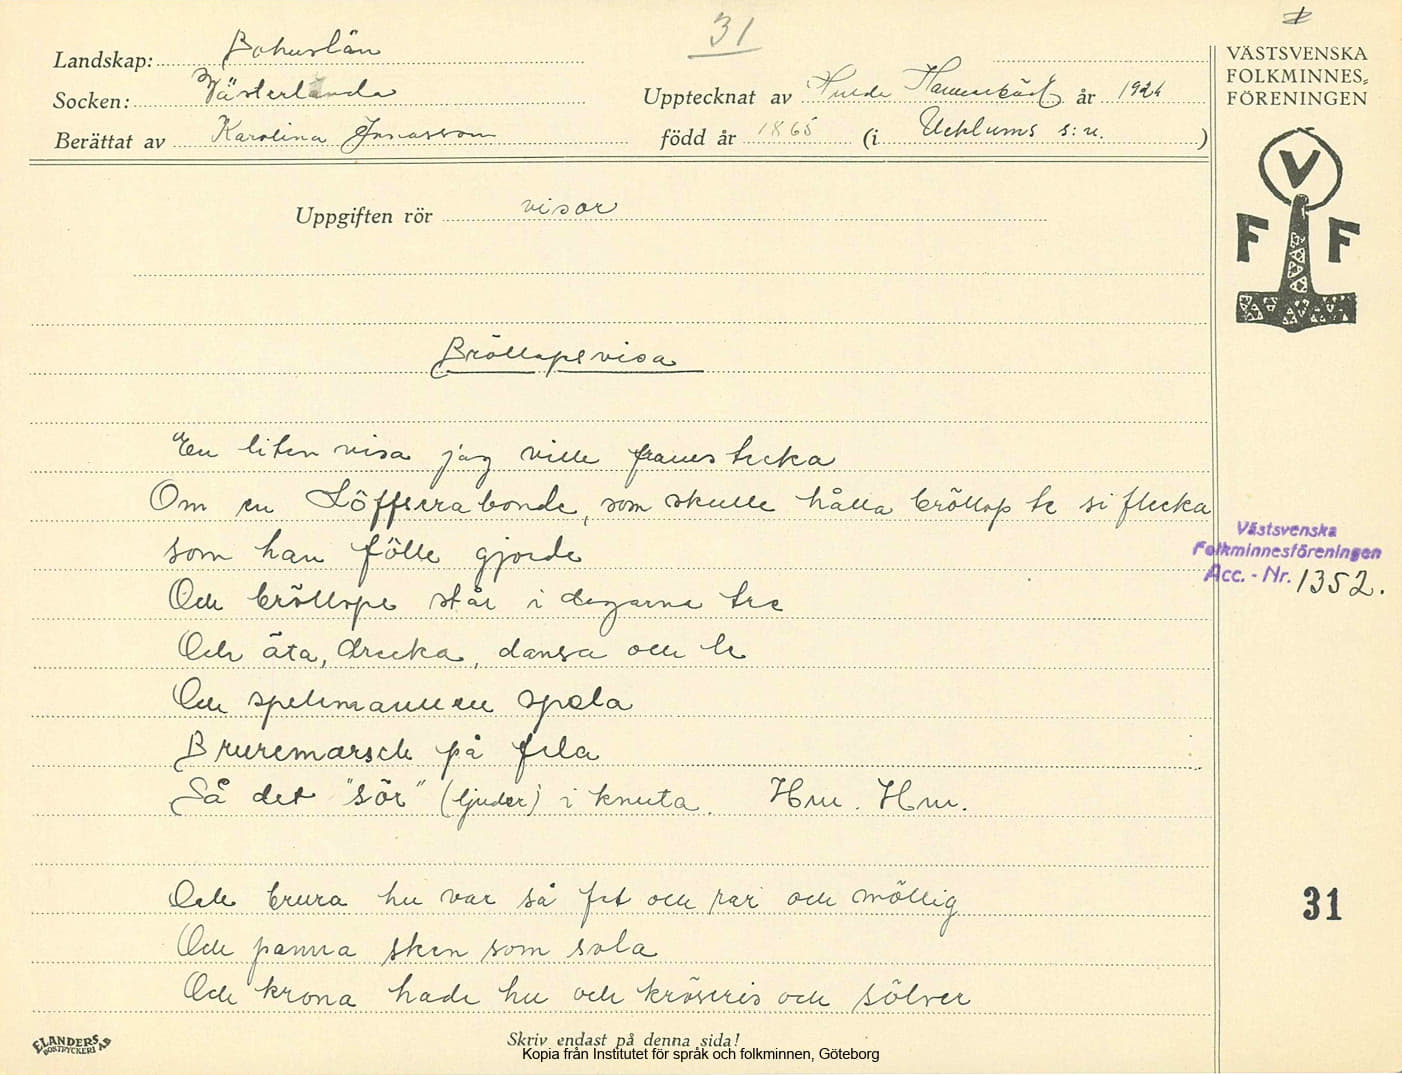 31
Landskap: Bohuslän
Socken: Västerlanda
Upptecknat av Hulda Hammarbäck år 1926
Berättat av Karolina Jonasson född år 1865 (i Ucklums s:n. )
VÄSTSVENSKA
FOLKMINNES-
FÖRENINGEN
V
F F
Uppgiften rör visor
Bröllopsvisa
En liten visa jag ville framsteka
Om en bonde, som skulle hålla bröllop te si flecka
som han fölle gjorde
Och bröllope står i dagarna tre
Och äta, drecka, dansa och le
Och spelemannen spela
Bruremarsch på fela
Så det "sör" (ljuder) i knuta. Hm. Hm.
Västsvenska
Folkminnesföreningen
Acc. - Nr. 1352.
Och brura hu var så fet och rar och möllig
Och panna sken som sola
Och krona hade hu och och sölver
31
Skriv endast på denna sida!
ELANDERS
BOKTRYCKERI AB
Kopia från Institutet för språk och folkminnen, Göteborg